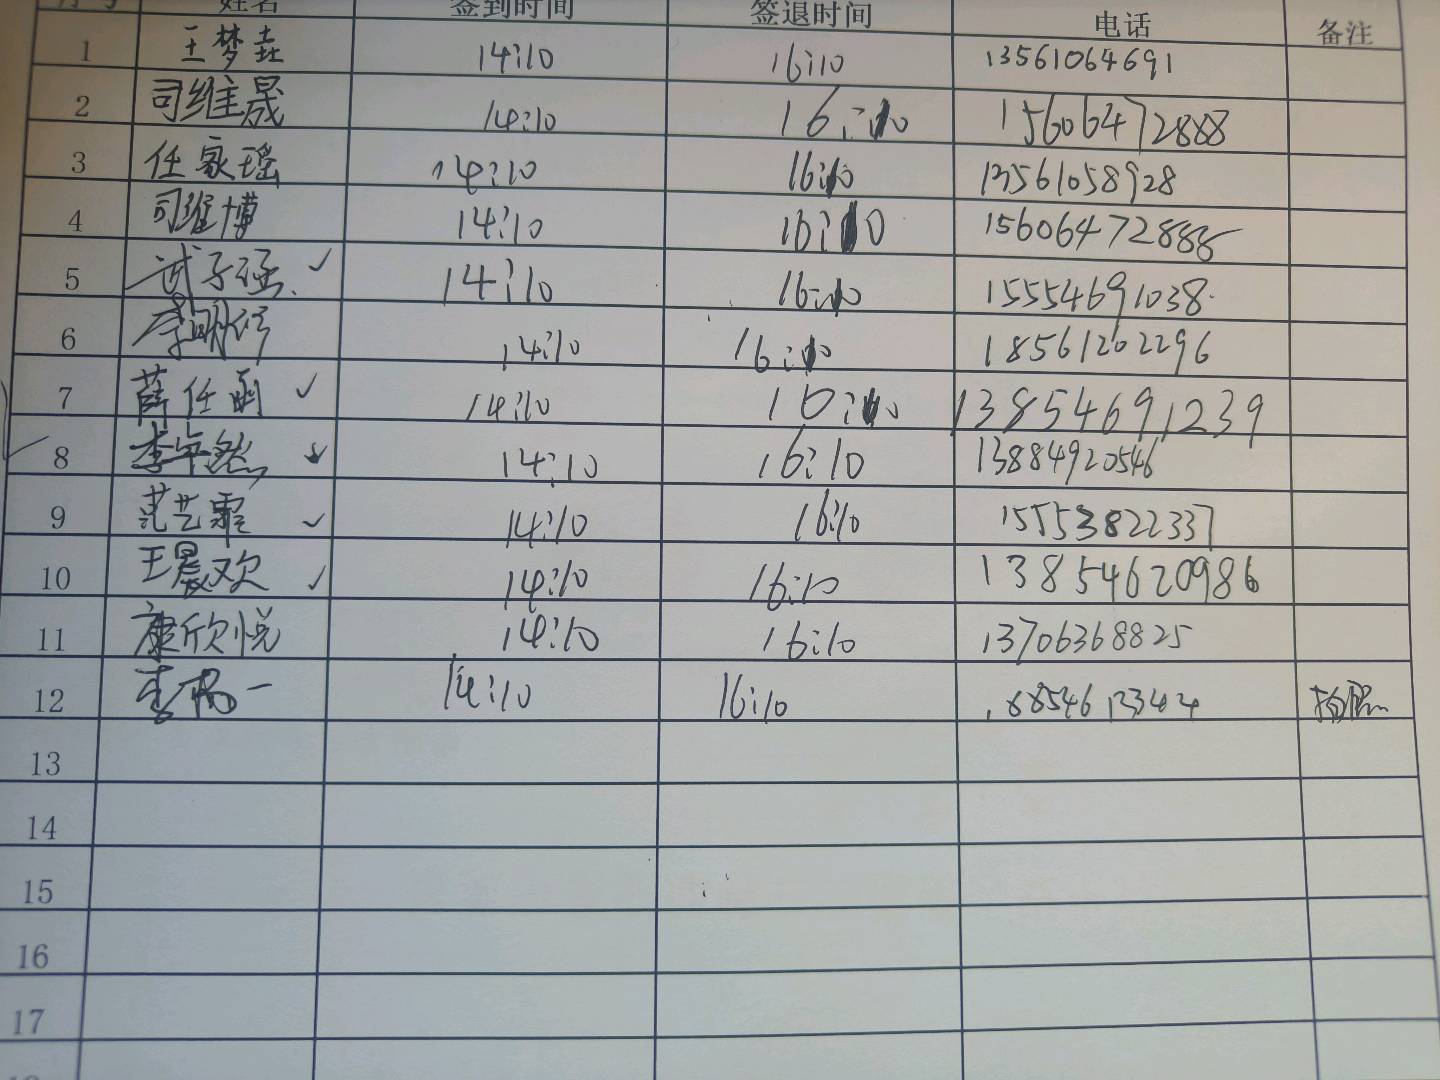 序号 姓名 签到时间 签退时间 电话 备注
1 王梦垚 14:10 16:10 13561064691
2 司维晟 14:10 16:10 15606472888
3 任家瑶 14:10 16:10 13561058928
4 司维博 14:10 16:10 15606472888
5 武子涵 ✓ 14:10 16:10 15554691038
6 李明修 14:10 16:10 18561202296
7 薛任函 ✓ 14:10 16:10 13854691239
8 李午 14:10 16:10 13884920546
9 范艺霏 ✓ 14:10 16:10 15553822337
10 王晨欢 ✓ 14:10 16:10 13854620986
11 康欣悦 14:10 16:10 13706368825
12 李 一 14:10 16:10
13
14
15
16
17